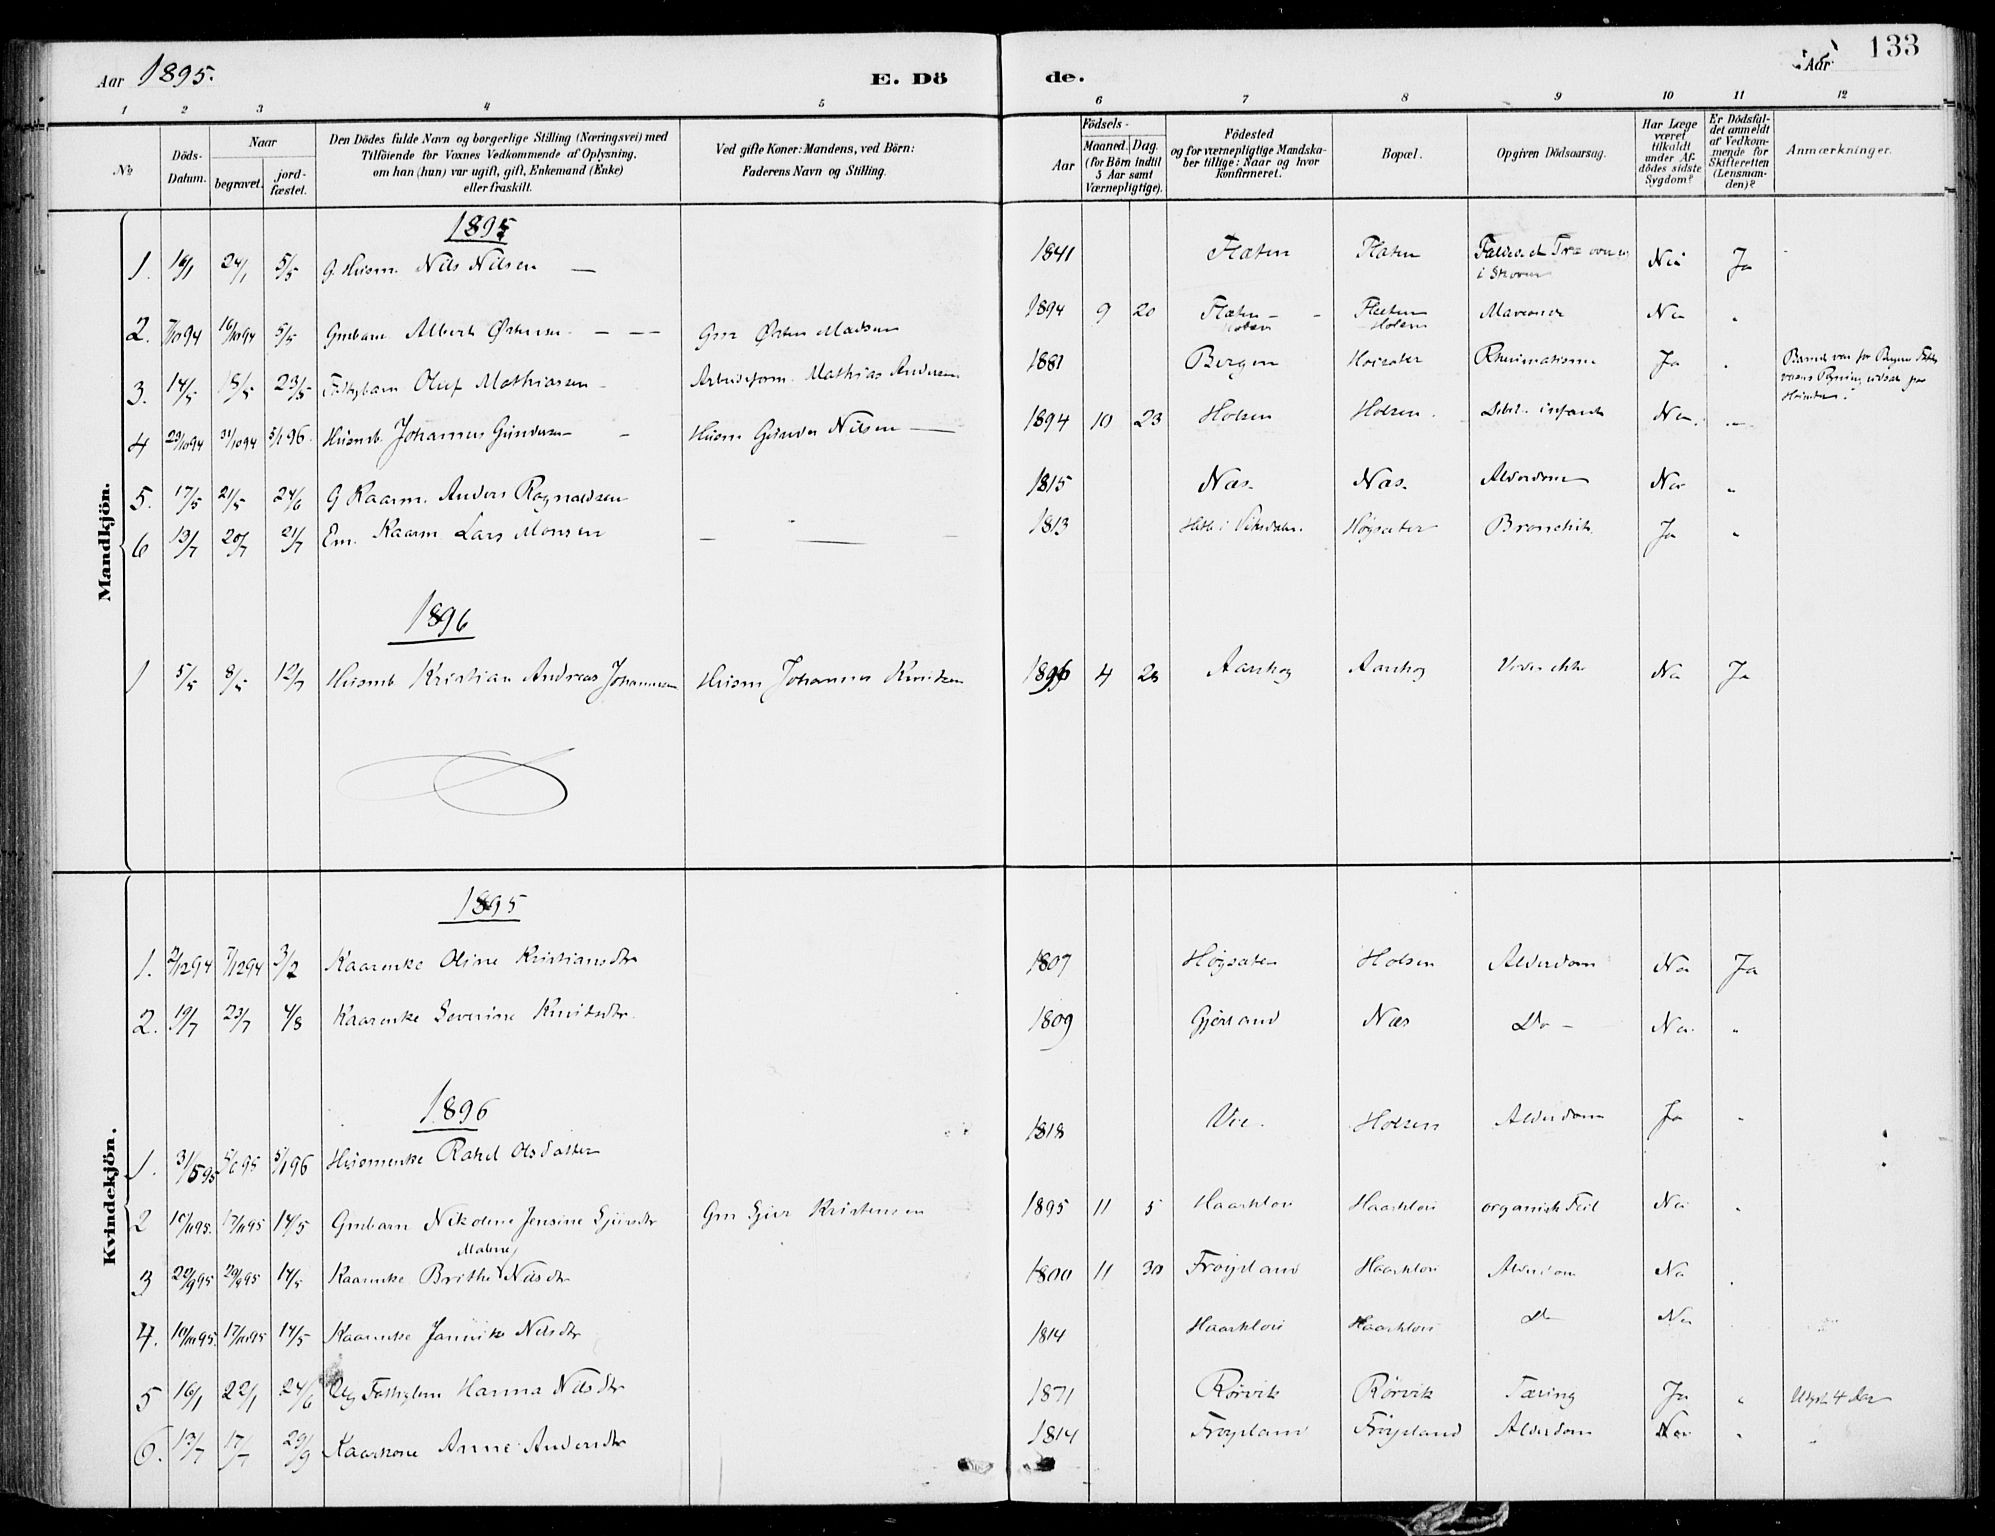 Aar 1895.
E. Dö
de.
Aar
133
1 2 3 4 5 6 7 8 9 10 11 12
No
Döds-
Datum.
Naar
begravet.
jord-
fæstet.
Den Dödes fulde Navn og borgerlige Stilling (Næringsvei) med
Tilföiende for Voxnes Vedkommende af Oplysning,
om han (hun) var ugift, gift, Enkemand (Enke)
eller fraskilt.
Ved gifte Koner: Mandens, ved Börn:
Faderens Navn og Stilling.
Födsels-
Aar
Maaned. Dag.
(for Börn indtil
5 Aar samt
Værnepligtige).
Födested
og for værnepligtige Mandska-
ber tillige: Naar og hvor
konfirmeret.
Bopæl.
Opgiven Dödsaarsag.
Har Læge
været
tilkaldt
under Af-
dödes sidste
Sygdom?
Er Dödsfal-
det anmeldt
af Vedkom-
mende for
Skifteretten
(Lensman-
den)?
Anmærkninger.
Mandkjön.
1895
1. 16/1 24/1 5/5 G Husm. Nils Nilsen — 1841 Flaten Flaten i Skoven Nei Ja
2. 7/10 94 16/10 94 5/5 Gmbarn Albert Østensen Gm Østen Madsen 1894 9 20 Flaten Holsen Flaten Holsen Nei "
3. 14/5 18/5 23/5 Olef Mathiassen Mathias Andersen 1881 Bergen Høisæter Rheumatisme Ja "
4 29/10 94 31/10 94 5/1 96. Husmb. Johannes Gundersen Husm Gunder Nilsen — 1894 10 23 Holsen Holsen. Debil. infant Nei. "
5. 17/5 21/5 24/6 G Kaarm. Anders Ragnaldsen 1815 Næs. Næs. Alderdom Nei "
6 13/7 20/7 21/7 Em. Kaarm Lars Monsen — — 1813 Høysæter Bronchit. Ja "
1896
1 5/5 8/5 12/7 Husmb Kristian Andreas Johannessen Husm Johannes Knutsen 1896 4 28 Aarskog Aarskog Vides ikke Nei Ja
Kvindekjön.
1895
1. 2/12 94 7/12 94 3/2 Kaarenke Oline Kristiansdtr 1807 Høysæter Holsen Alderdom Nei Ja
2. 19/7 23/7 4/8 Kaarenke Severine Knutsdtr. 1809 Gjesland Næs Do — Nei. "
1896
1. 31/5 95 5/6 95 5/1 96 Husmenke Rakel Olsdatter 1818 Vie. Holsen Alderdom Ja "
2 10/11 95. 17/11 95 14/5 Gmbarn Nikoline Jensine Sjursdtr Gm Sjur Kristensen 1895 11 5 Haarklou Haarklou organisk Feil Nei "
Malene
3 22/9 95 29/9 95 14/5 Kaarenke Brithe Nilsdtr 1800 11 30 Frøysland Haarklou Alderdom Nei "
4. 10/11 95. 17/11 95 14/5 Kaarenke Jannike Nilsdtr 1814 Haarklou Haarklou Do Nei
5 16/1 22/1 24/6 Ug Hanna Nilsdtr 1871 Rørvik Rørvik Tæring Ja "
6. 13/7 17/7 29/9 Kaarkone Anne Andersdtr 1814 Frøysland Frøysland Alderdom Nei "